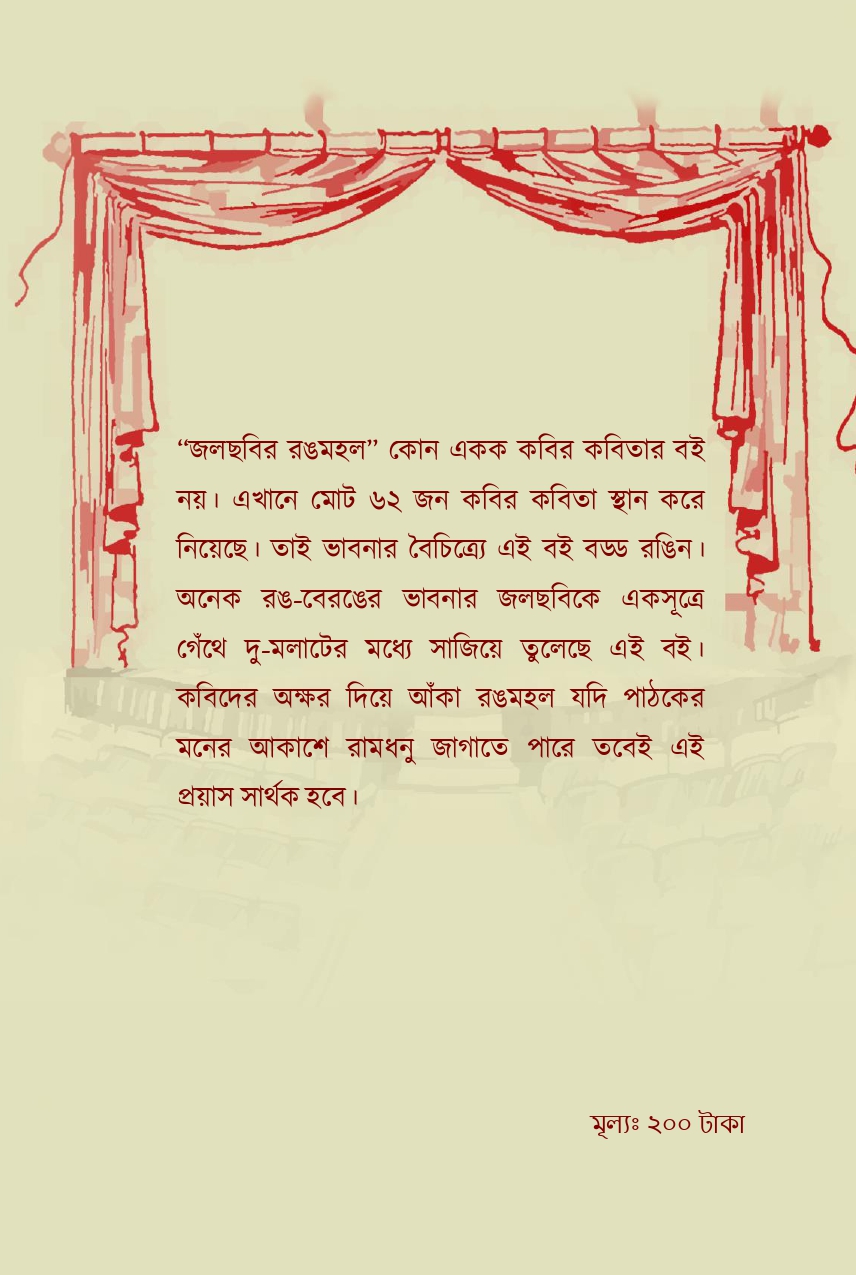 “জলছবির রঙমহল” কোন একক কবির কবিতার বই
নয়। এখানে মোট ৬২ জন কবির কবিতা স্থান করে
নিয়েছে। তাই ভাবনার বৈচিত্র্যে এই বই বড্ড রঙিন।
অনেক রঙ-বেরঙের ভাবনার জলছবিকে একসূত্রে
গেঁথে দু-মলাটের মধ্যে সাজিয়ে তুলেছে এই বই।
কবিদের অক্ষর দিয়ে আঁকা রঙমহল যদি পাঠকের
মনের আকাশে রামধনু জাগাতে পারে তবেই এই
প্রয়াস সার্থক হবে।
মূল্যঃ ২০০ টাকা